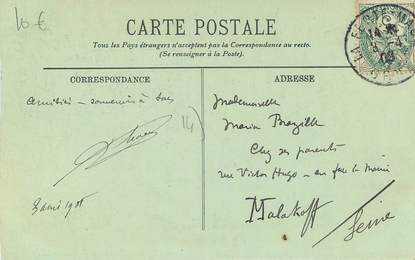 10 €
CARTE POSTALE
Tous les Pays étrangers n'acceptent pas la Correspondance au recto.
(Se renseigner à la Poste).
CORRESPONDANCE
ADRESSE
Amitiés - souvenirs à tous
Mademoiselle
Maria
Chez ses parents
rue Victor Hugo - en face la Mairie
Malakoff
Seine